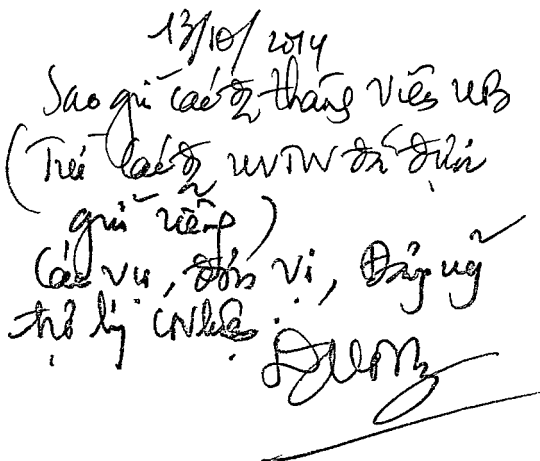 13/10/2014
Sao gửi các đ/c thành viên UB
(Trừ các đ/c UVTW đã được
gửi riêng)
Các vụ, đơn vị, Đảng uỷ
trợ lý CNhiệm